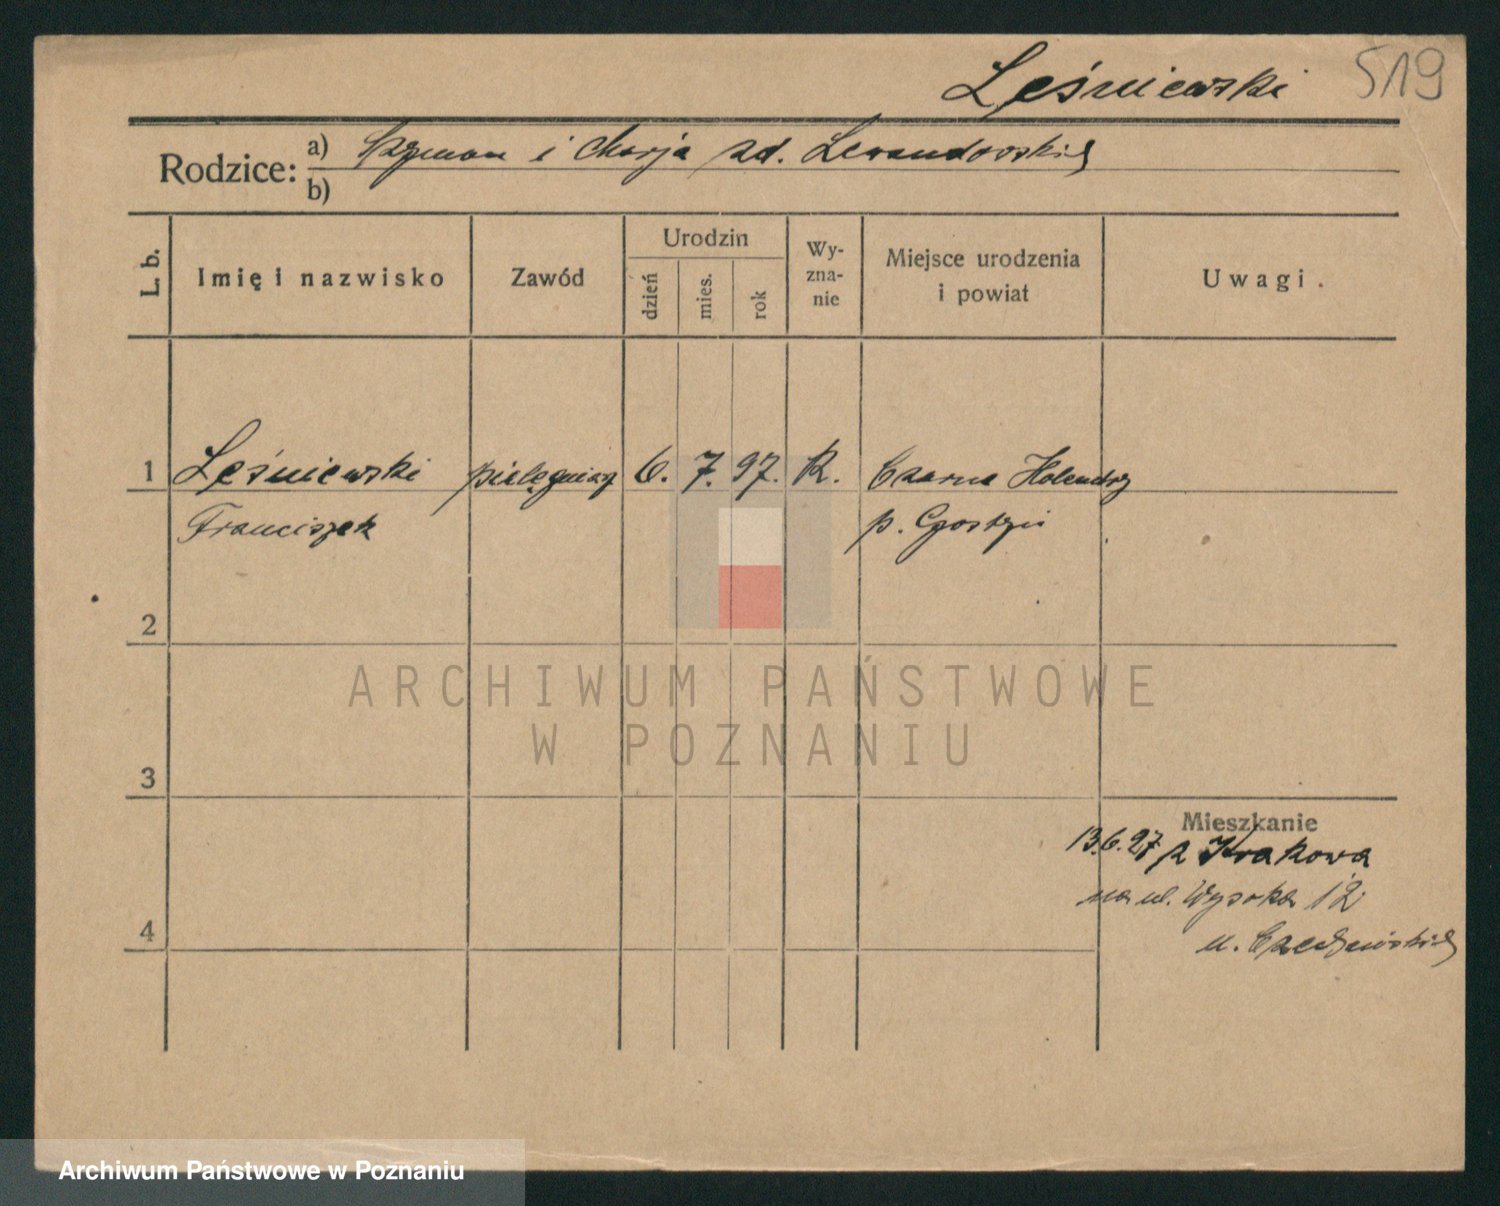 Leśniewski 519
Rodzice: a) Szymon i Marja zd. Lewandowskiej
b)
L. b. Imię i nazwisko Zawód Urodzin dzień mies. rok Wy-zna-nie Miejsce urodzenia i powiat Uwagi.
1 Leśniewski pielęgniarz 6. 7. 97. R. Czarne Holendry
Franciszek p. Gostyń
2
ARCHIWUM PAŃSTWOWE
W POZNANIU
3
Mieszkanie
13.6.27 z Krakowa
na ul. Wysoka 12
4 u.
Archiwum Państwowe w Poznaniu